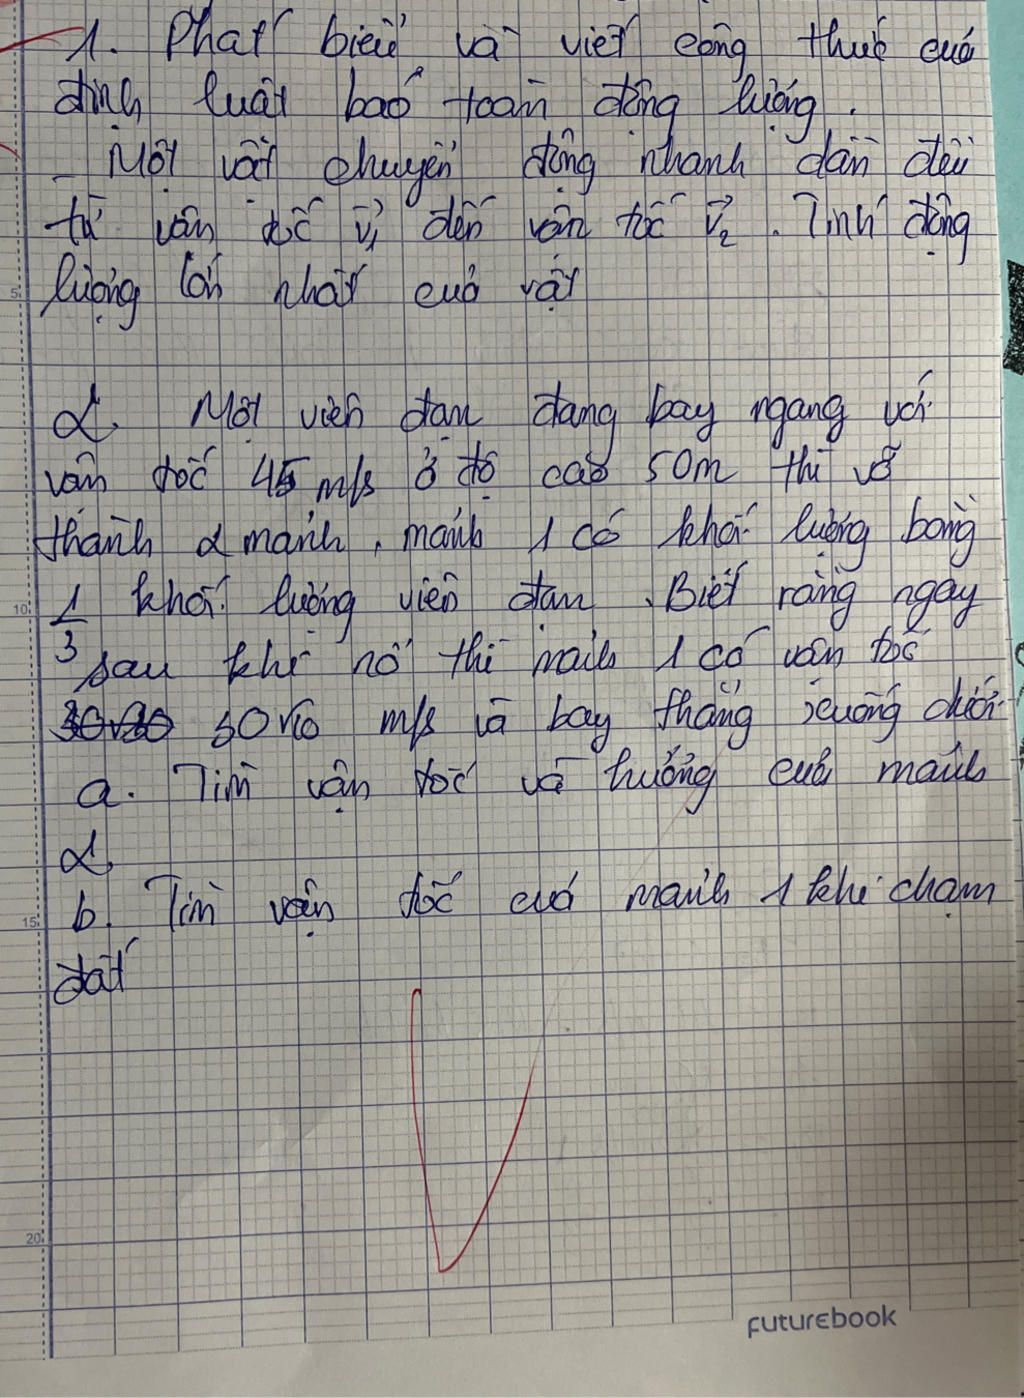 1. Phát biểu và viết công thức của
định luật bảo toàn động lượng.
_ Một vật chuyển động nhanh dần đều
từ vận tốc v₁ đến vận tốc v₂. Tính động
lượng lớn nhất của vật
2. Một viên đạn đang bay ngang với
vận tốc 45 m/s ở độ cao 50m thì vỡ
thành 2 mảnh, mảnh 1 có khối lượng bằng
1/3 khối lượng viên đạn. Biết rằng ngay
sau khi nổ thì mảnh 1 có vận tốc
m/s và bay thẳng xuống dưới
a. Tìm vận tốc và hướng của mảnh
2
b. Tìm vận tốc của mảnh 1 khi chạm
đất
5
10
15
20
FUTUREBOOK